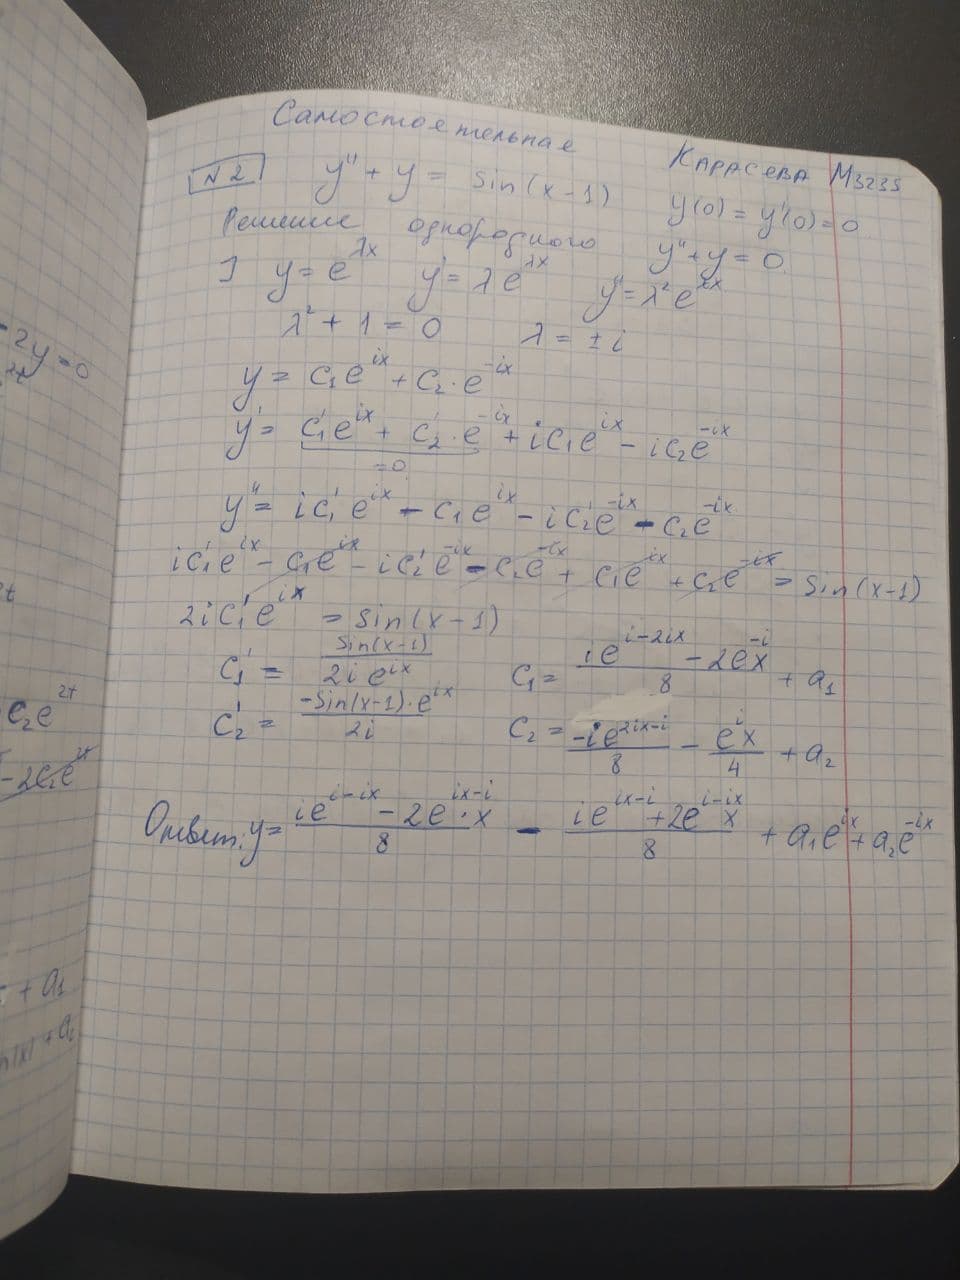 Самостоятельная
Карасева М3235
№2 y'' + y = sin(x-1) y(0) = y'(0) = 0
Решение однородного y'' + y = 0
I y = e^{λx} y' = λe^{λx} y'' = λ²e^{λx}
λ² + 1 = 0 λ = ±i
y = c₁e^{ix} + c₂·e^{-ix}
y' = c₁'e^{ix} + c₂'·e^{-ix} + ic₁e^{ix} - ic₂e^{-ix}
=0
y'' = ic₁'e^{ix} - c₁e^{ix} - ic₂'e^{-ix} - c₂e^{-ix}
ic₁'e^{ix} - c₁e^{ix} - ic₂'e^{-ix} - c₂e^{-ix} + c₁e^{ix} + c₂e^{-ix} = sin(x-1)
2ic₁'e^{ix} = sin(x-1)
c₁' = sin(x-1) / 2ie^{ix} c₁ = (ie^{i-2ix} - 2e^{-i}x) / 8 + a₁
c₂' = -sin(x-1)·e^{ix} / 2i c₂ = -ie^{2ix-i} / 8 - e^{i}x / 4 + a₂
Ответ: y = (ie^{i-ix} - 2e^{ix-i}·x) / 8 - (ie^{ix-i} + 2e^{i-ix}x) / 8 + a₁e^{ix} + a₂e^{-ix}
-2y=0
c₂e^{2t}
-2c₂e^{2t}
+ a₁
+ a₂